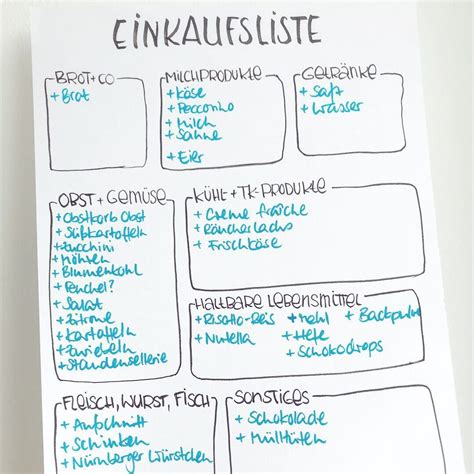 EINKAUFSLISTE
BROT+CO
+ Brot
MILCHPRODUKTE
+ Käse
+ Pecorino
+ Milch
+ Sahne
+ Eier
GETRÄNKE
+ Saft
+ Wasser
OBST + GEMÜSE
+ Obstkorb Obst
+ Süßkartoffeln
+ Zucchini
+ Möhren
+ Blumenkohl
+ Fenchel?
+ Salat
+ Zitrone
+ Kartoffeln
+ Zwiebeln
+ Staudensellerie
KÜHL + TK-PRODUKTE
+ Creme fraîche
+ Räucherlachs
+ Frischkäse
HALTBARE LEBENSMITTEL
+ Risotto-Reis + Mehl + Backpulver
+ Nutella + Hefe
+ Schokodrops
FLEISCH, WURST, FISCH
+ Aufschnitt
+ Schinken
+ Nürnberger Würstchen
SONSTIGES
+ Schokolade
+ Mülltüten